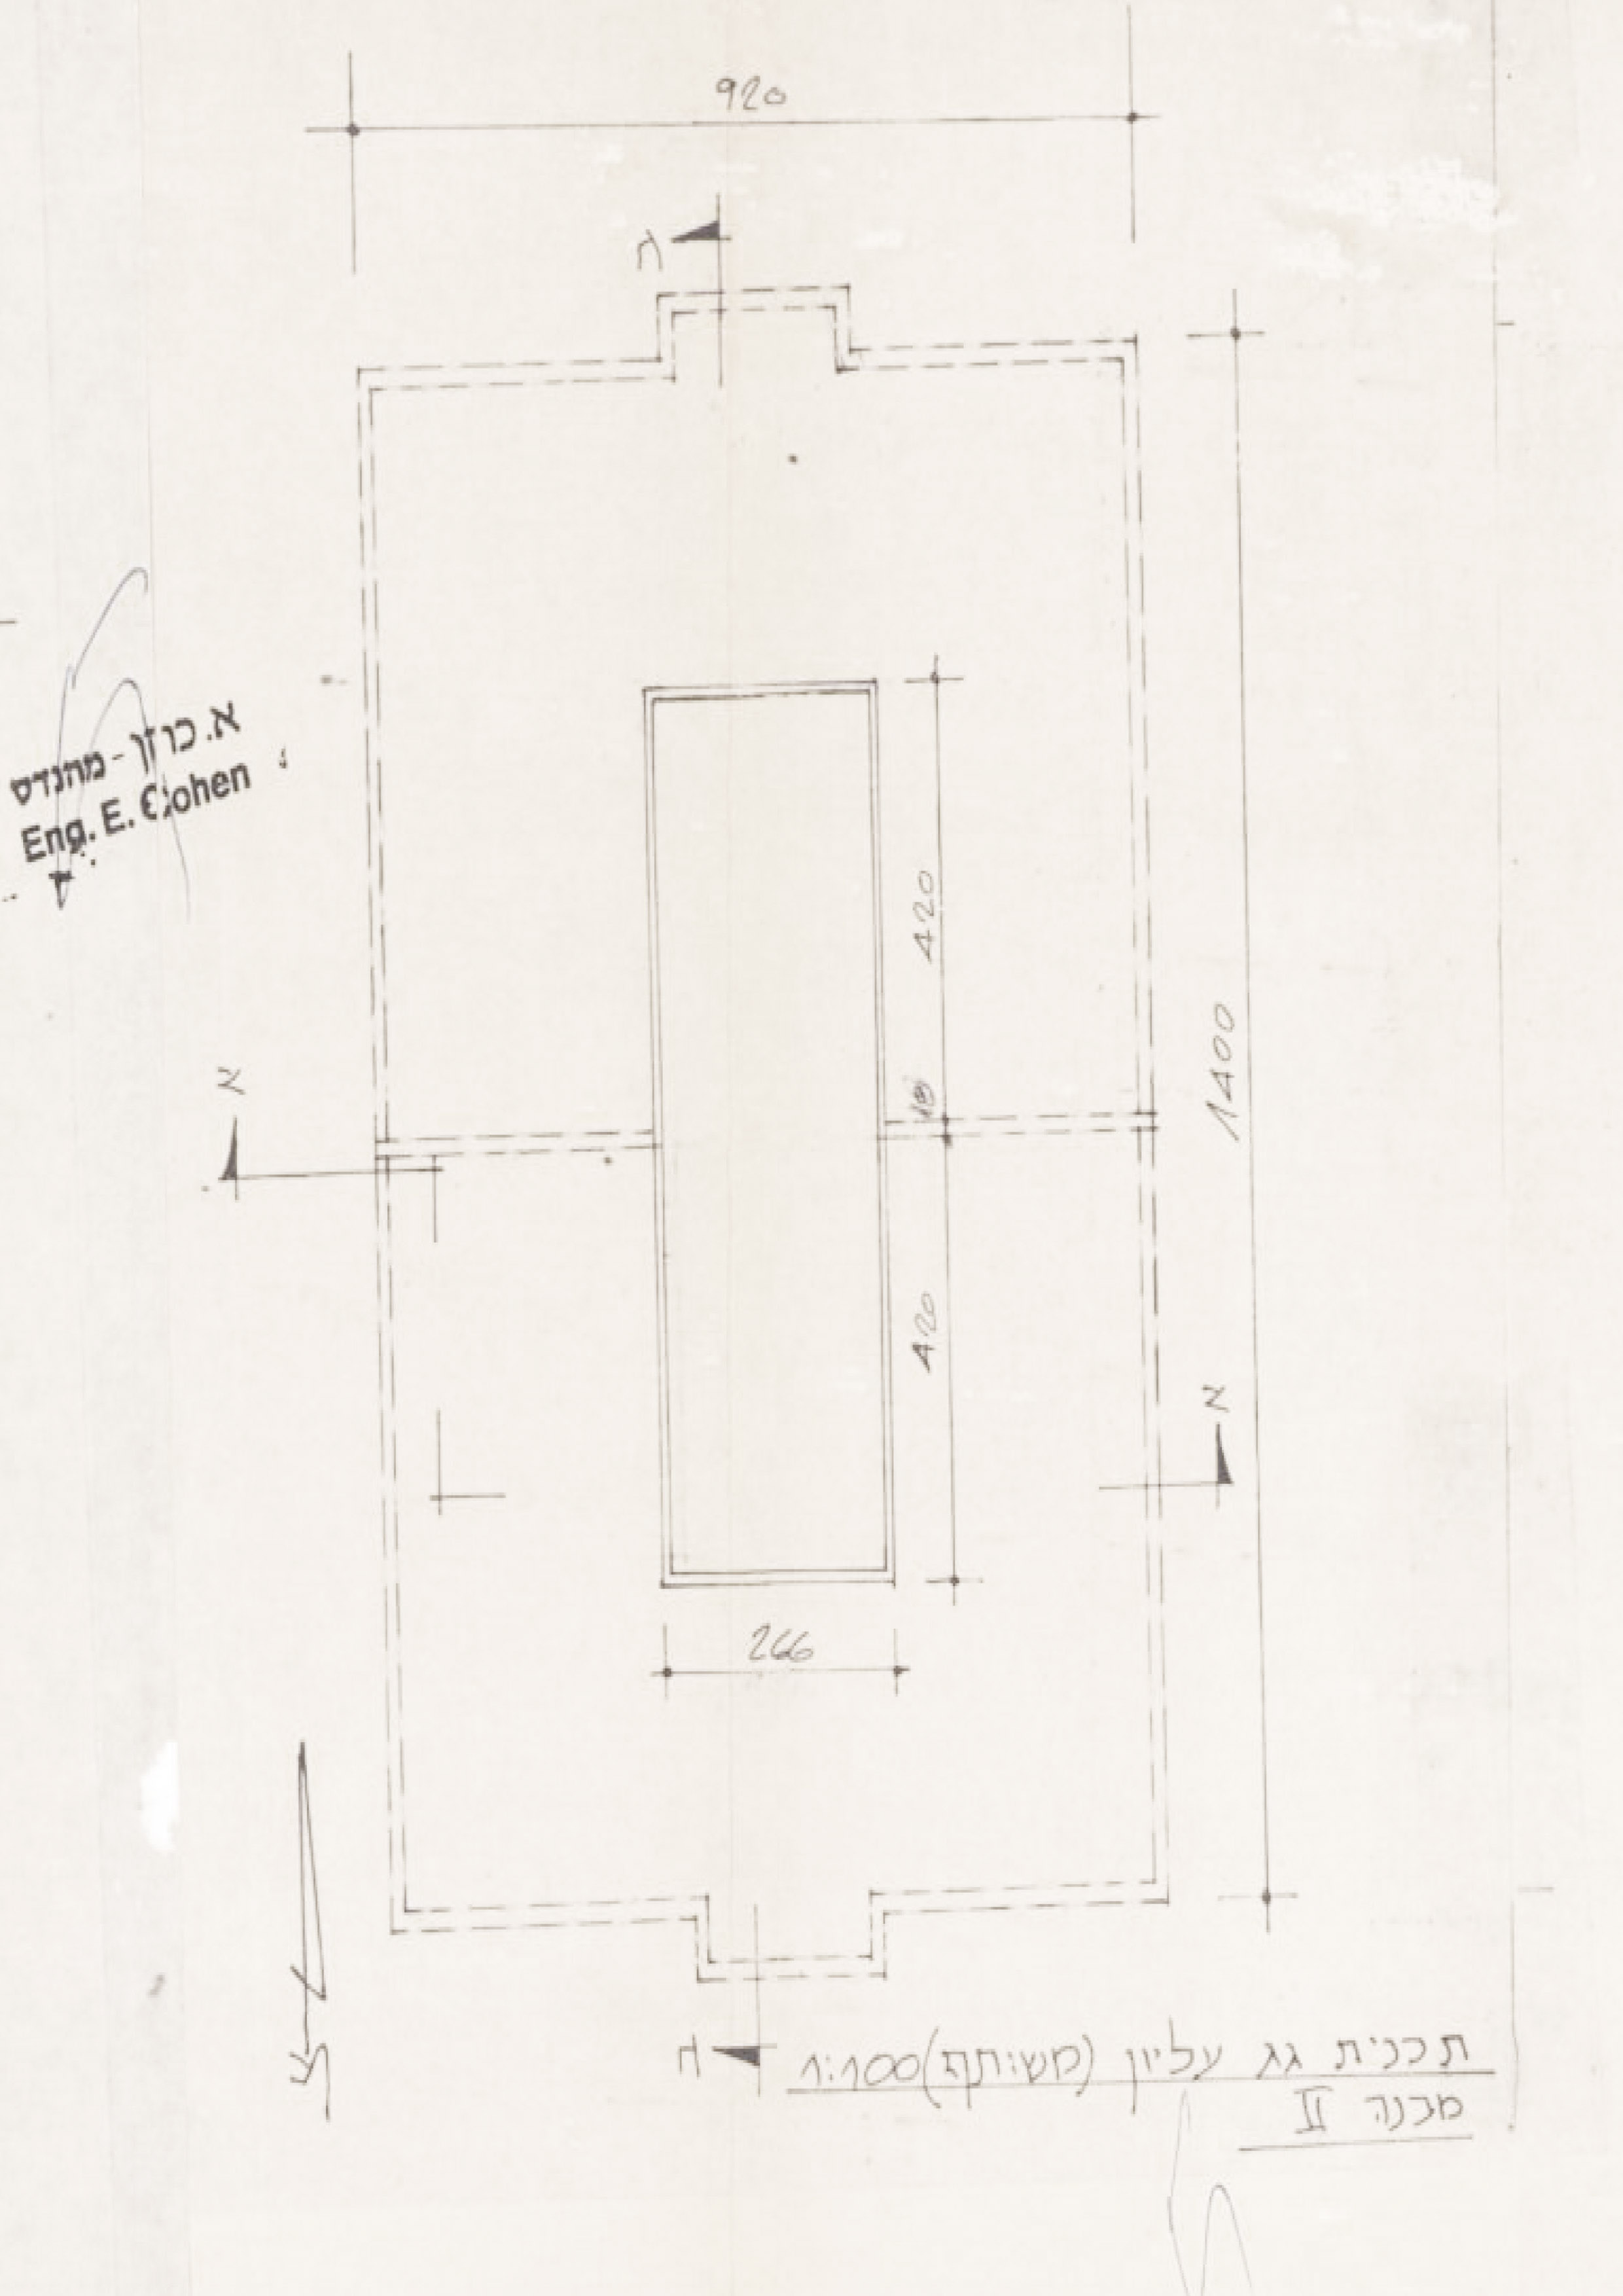 920
ח
א. כהן - מהנדס
Eng. E. Cohen
420
18
1400
א
420
א
266
צ
ח
תכנית גג עליון (משותף) 1:100
מבנה II